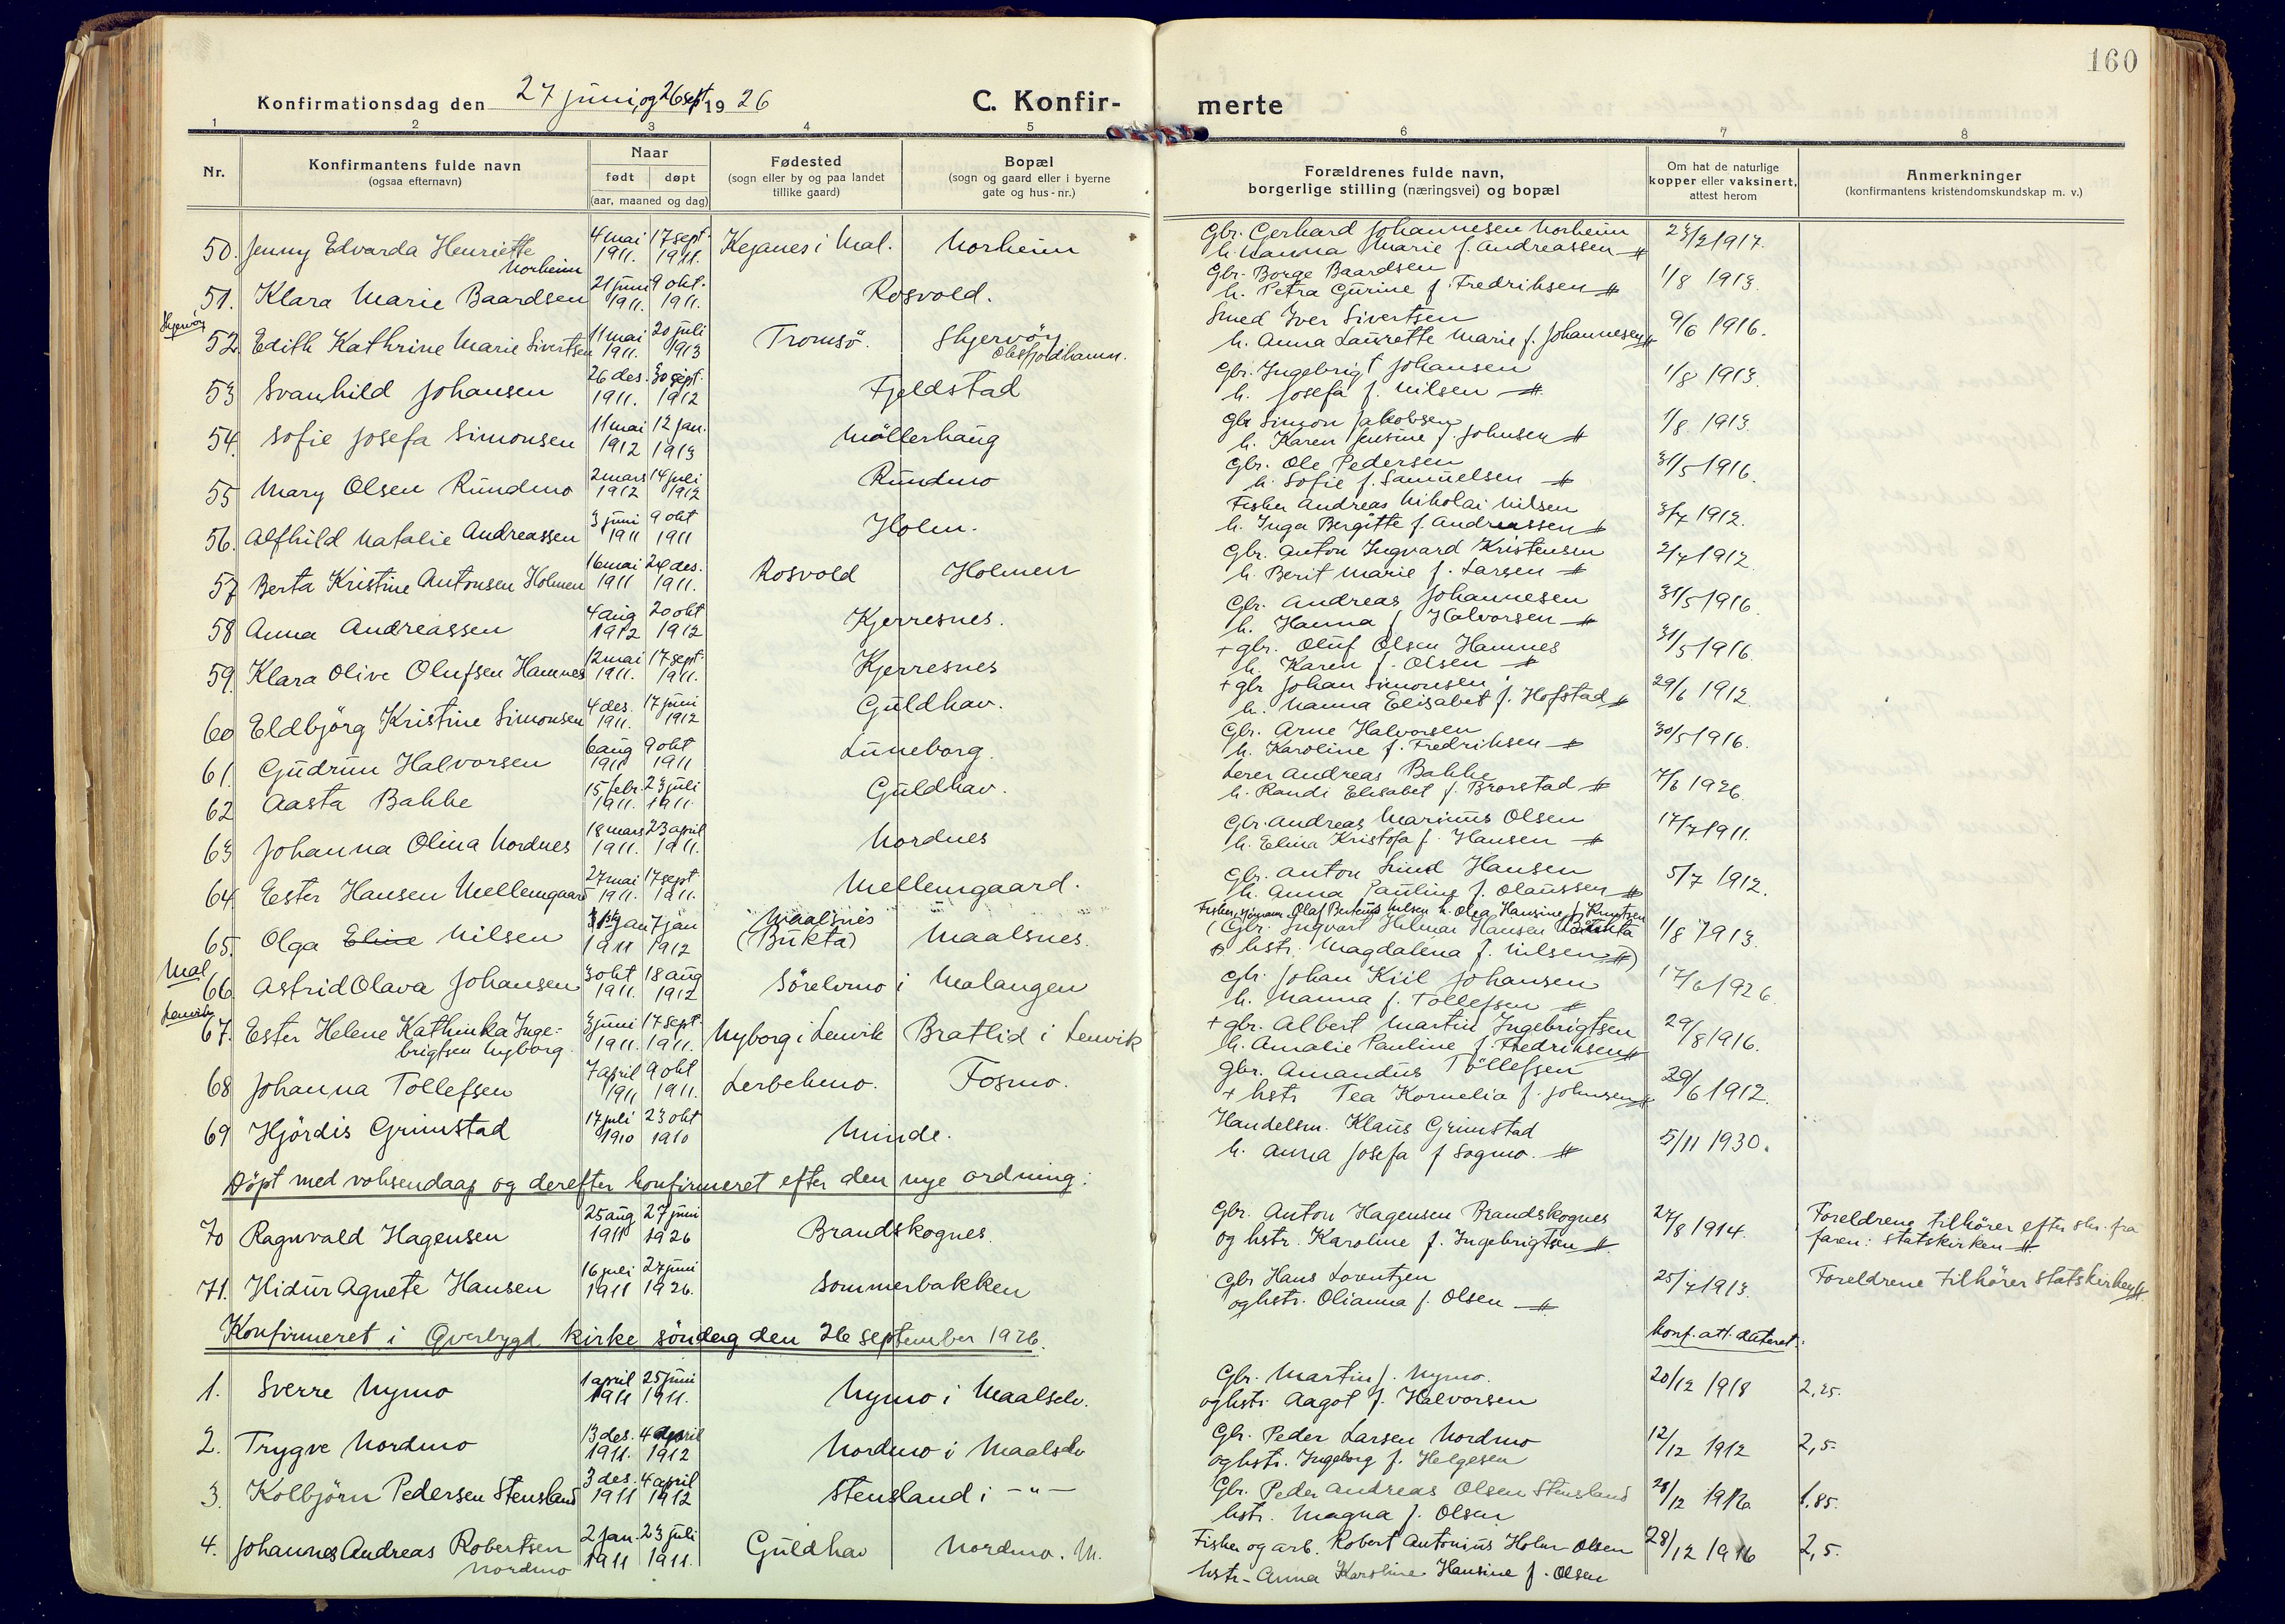 160
Konfirmationsdag den 27 juni, og 26 sept 1926
C. Konfirmerte
1 2 3 4 5 6 7 8
Nr.
Konfirmantens fulde navn
(ogsaa efternavn)
Naar
født døpt
(aar, maaned og dag)
Fødested
(sogn eller by og paa landet
tillike gaard)
Bopæl
(sogn og gaard eller i byerne
gate og hus-nr.)
Forældrenes fulde navn,
borgerlige stilling (næringsvei) og bopæl
Om hat de naturlige
kopper eller vaksinert,
attest herom
Anmerkninger
(konfirmantens kristendomskundskap m. v.)
50. Jenny Edvarda Henriette Norheim 4 mai 1911. 17 sept. 1911. Kejanes i Mal. Norheim
Gbr. Gerhard Johannesen Norheim
h. Nanna Marie f. Andreassen 1917.
51. Klara Marie Baardsen 21 juni 1911. 9 okt. 1911. Rosvold.
Gbr. Borge Baardsen
h. Petra Gurine f. Fredriksen 1/8 1913.
Skjervöy
52. Edith Kathrine Marie Sivertsen 11 mai 1911. 20 juli 1913 Tromsö. Skjervöy
Smed Iver Sivertsen
h. Anna Laurette Marie f. Johannesen 9/6 1916.
53 Svanhild Johansen 26 des. 1911. 30 sept. 1912 Fjeldstad
Gbr. Ingebrigt Johansen
h. Josefa f. Nilsen 1/8 1913.
54. Sofie Josefa Simonsen 11 mai 1912 12 jan. 1913 Möllerhaug
Gbr Simon Jakobsen
h. Karen Jensine f. Johnsen 1/8 1913.
55 Mary Olsen Rundmo 2 mars 1912 14 juli 1912 Rundmo
Gbr. Ole Pedersen
h. Sofie f. Samuelsen 31/5 1916.
56. Alfhild Natalie Andreassen 3 juni 1911 9 okt 1911 Holm.
Fisker Andreas Nikolai Nilsen
h. Inga Bergitte f. Andreassen 3/7 1912.
57 Berta Kristine Antonsen Holmen 16 mai 1911 24 des. 1911. Rosvold Holmen
Gbr. Anton Ingvard Kristensen
h. Berit Marie f. Larsen 2/7 1912
58 Anna Andreassen 4 aug 1912 20 okt 1912 Kjerresnes.
Gbr. Andreas Johannesen
h. Hanna f Halvorsen 31/5 1916.
59. Klara Olive Olufsen Hamnes 12 mai 1911. 17 sept. 1911. Kjerresnes
+ gbr. Oluf Olsen Hamnes
h. Karen f. Olsen 31/5 1916.
60 Eldbjörg Kristine Simonsen 4 des. 1911. 17 juni 1912 Guldhav.
+ gbr Johan Simonsen
h. Nanna Elisabet f. Hofstad 29/6 1912.
61. Gudrun Halvorsen 6 aug 1911 9 okt 1911 Luneborg.
Gbr. Arne Halvorsen
h. Karoline f. Fredriksen 30/5 1916.
62 Aasta Bakke 15 febr. 1911. 23 juli 1911. Guldhav.
Lerer Andreas Bakke
h. Randi Elisabet f. Brorstad 7/6 1926.
63 Johanna Olina Nordnes 18 mars 1911. 23 april 1911. Nordnes
Gbr. Andreas Marinus Olsen
h. Elina Kristofa f. Hansen 17/7 1911.
64. Ester Hansen Mellemgaard 27 mai 1911. 17 sept 1911. Mellemgaard.
Gbr. Anton Lind Hansen
h. Anna Pauline f. Olaussen 5/7 1912.
65. Olga Eline Nilsen jan 1911 7 jan 1912 Maalsnes (Bukta) Maalsnes.
Fisker, Olaf Berteus Nilsen h. Olea Hansine f. Knutsen
(Gbr. Ingvart Hilmar Hansen
hstr. Magdalena f. Nilsen) 1/8 1913.
Mal
66. Astrid Olava Johansen 3 okt 1911. 18 aug 1912 Sörelvmo i Malangen
Gbr. Johan Kiil Johansen
h. Nanna f. Tollefsen 17/6 1926.
Lenvik
67. Ester Helene Kathinka Inge-
brigtsen Nyborg. 3 juni 1911. 17 sept. 1911. Nyborg i Lenvik Bratlid i Lenvik
+ gbr. Albert Martin Ingebrigtsen
h. Amalie Pauline f. Fredriksen 29/8 1916.
68 Johanna Tollefsen 7 april 1911 9 okt 1911. Fosmo.
Gbr. Amandus Tollefsen
+ hstr Tea Kornelia f. Johnsen 29/6 1912.
69 Hjördis Grimstad 17 juli 1910 23 okt 1910 Minde.
Handelsm. Klaus Grimstad
h. Anna Josefa f Sogmo. 5/11 1930.
Döpt med voksendaap og derefter konfirmeret efter den nye ordning:
70 Ragnvald Hagensen 25 aug 1911 27 juni 1926 Brandskognes.
Gbr. Anton Hagensen Brandskognes
og hstr. Karoline f. Ingebrigtsen 24/8 1914.
Foreldrene tilhörer efter skr. fra
faren: Statskirken
71. Hidur Agnete Hansen 16 juli 1911 27 juni 1926. Sommerbakken
Gbr Hans Lorentzen
og hstr. Olianna f. Olsen 25/7 1913.
Foreldrene tilhörer statskirken
Konfirmeret i Överbygd kirke söndag den 26 september 1926.
konf. att. datert:
1. Sverre Nymo 1 april 1911 25 juni 1911. Nymo i Maalselv.
Gbr. Martin J. Nymo.
og hstr. Aagot f. Halvorsen 20/12 1918 2,25.
2. Trygve Nordmo 13 des. 1911. 4 april 1912 Nordmo i Maalselv
Gbr. Peder Larsen Nordmo
og hstr. Ingeborg f. Helgesen 12/12 1912 2,5.
3. Kolbjörn Pedersen Stensland 3 des. 1911 4 april 1912 Stensland i - " -
Gbr. Peder Andreas Olsen Stensland
hstr. Magna f. Olsen 28/12 1916 1,85.
4. Johannes Andreas Robertsen Nordmo 2 jan. 1911 23 juli 1911. Guldhav Nordmo. M.
Fisker og arb. Robert Antonius Holm-Olsen
hstr. Anna Karoline Hansine f. Olsen 28/12 1916 2,5.